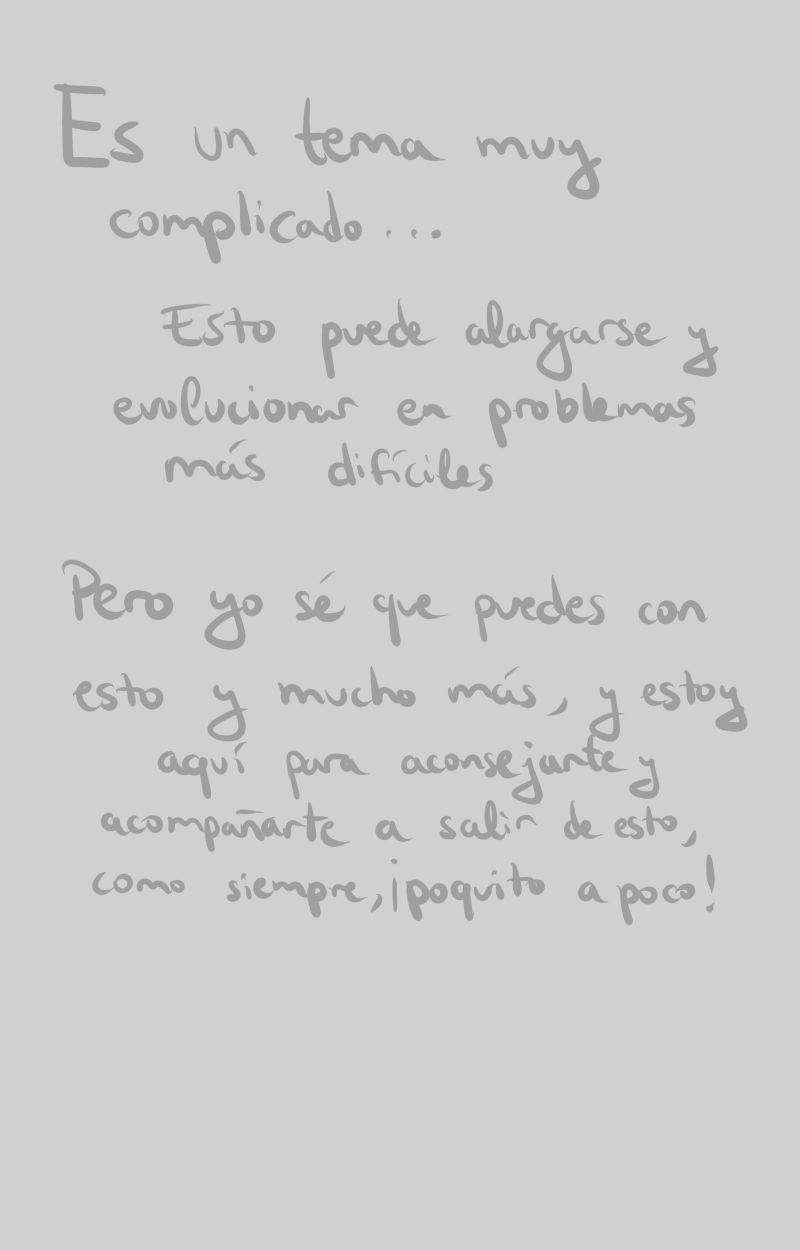 Es un tema muy
complicado...
Esto puede alargarse y
evolucionar en problemas
más difíciles
Pero yo sé que puedes con
esto y mucho más, y estoy
aquí para aconsejarte y
acompañarte a salir de esto,
como siempre, ¡poquito a poco!